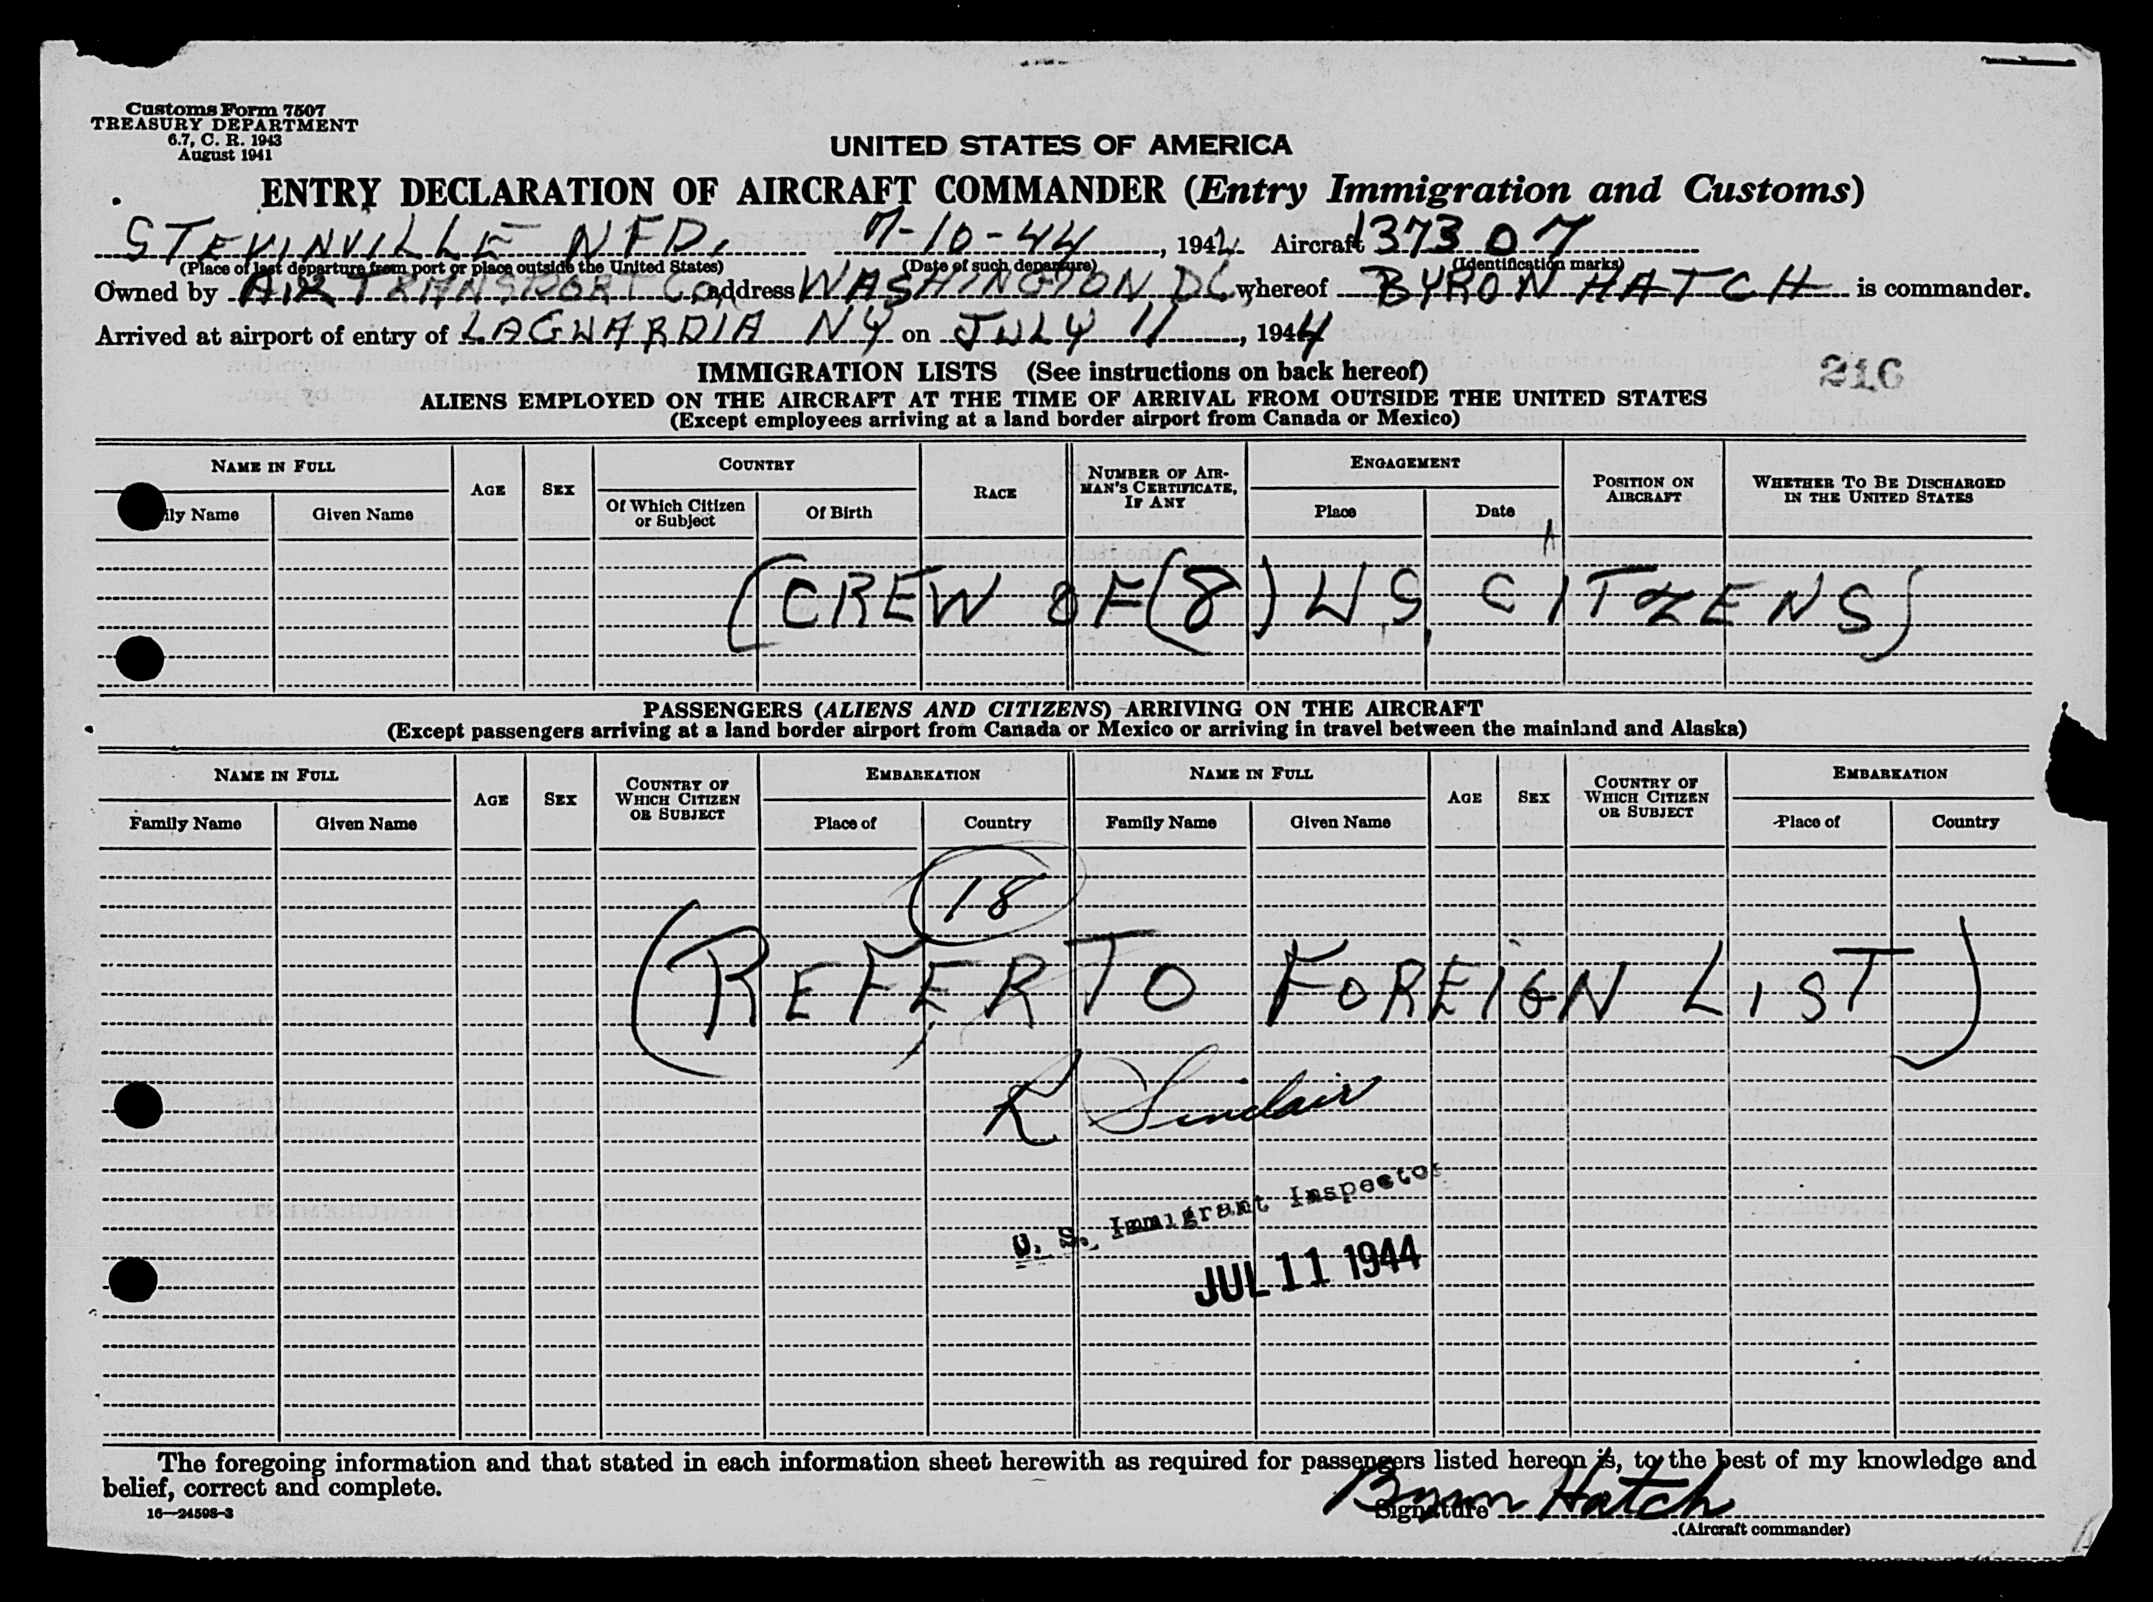 Customs Form 7507
TREASURY DEPARTMENT
6.7, C. R. 1943
August 1941
UNITED STATES OF AMERICA
ENTRY DECLARATION OF AIRCRAFT COMMANDER (Entry Immigration and Customs)
STEVINVILLE NFD. 7-10-44, 1944 Aircraft 137307
(Place of last departure from port or place outside the United States) (Date of such departure) (Identification marks)
Owned by AIR TRANSPORT Co, address WASHINGTON, DC whereof BYRON HATCH is commander.
Arrived at airport of entry of LAGUARDIA NY on JULY 11, 1944
IMMIGRATION LISTS (See instructions on back hereof)
216
ALIENS EMPLOYED ON THE AIRCRAFT AT THE TIME OF ARRIVAL FROM OUTSIDE THE UNITED STATES
(Except employees arriving at a land border airport from Canada or Mexico)
NAME IN FULL AGE SEX COUNTRY RACE NUMBER OF AIRMAN'S CERTIFICATE, IF ANY ENGAGEMENT POSITION ON AIRCRAFT WHETHER TO BE DISCHARGED IN THE UNITED STATES
ily Name Given Name Of Which Citizen or Subject Of Birth Place Date
(CREW OF (8) U.S. CITZENS)
PASSENGERS (ALIENS AND CITIZENS) ARRIVING ON THE AIRCRAFT
(Except passengers arriving at a land border airport from Canada or Mexico or arriving in travel between the mainland and Alaska)
NAME IN FULL AGE SEX COUNTRY OF WHICH CITIZEN OR SUBJECT EMBARKATION NAME IN FULL AGE SEX COUNTRY OF WHICH CITIZEN OR SUBJECT EMBARKATION
Family Name Given Name Place of Country Family Name Given Name Place of Country
18
(REFER TO FOREIGN LIST)
R Sinclair
U. S. Immigrant Inspector
JUL 11 1944
The foregoing information and that stated in each information sheet herewith as required for passengers listed hereon is, to the best of my knowledge and
belief, correct and complete.
16—24598-3
Signature Byron Hatch
(Aircraft commander)